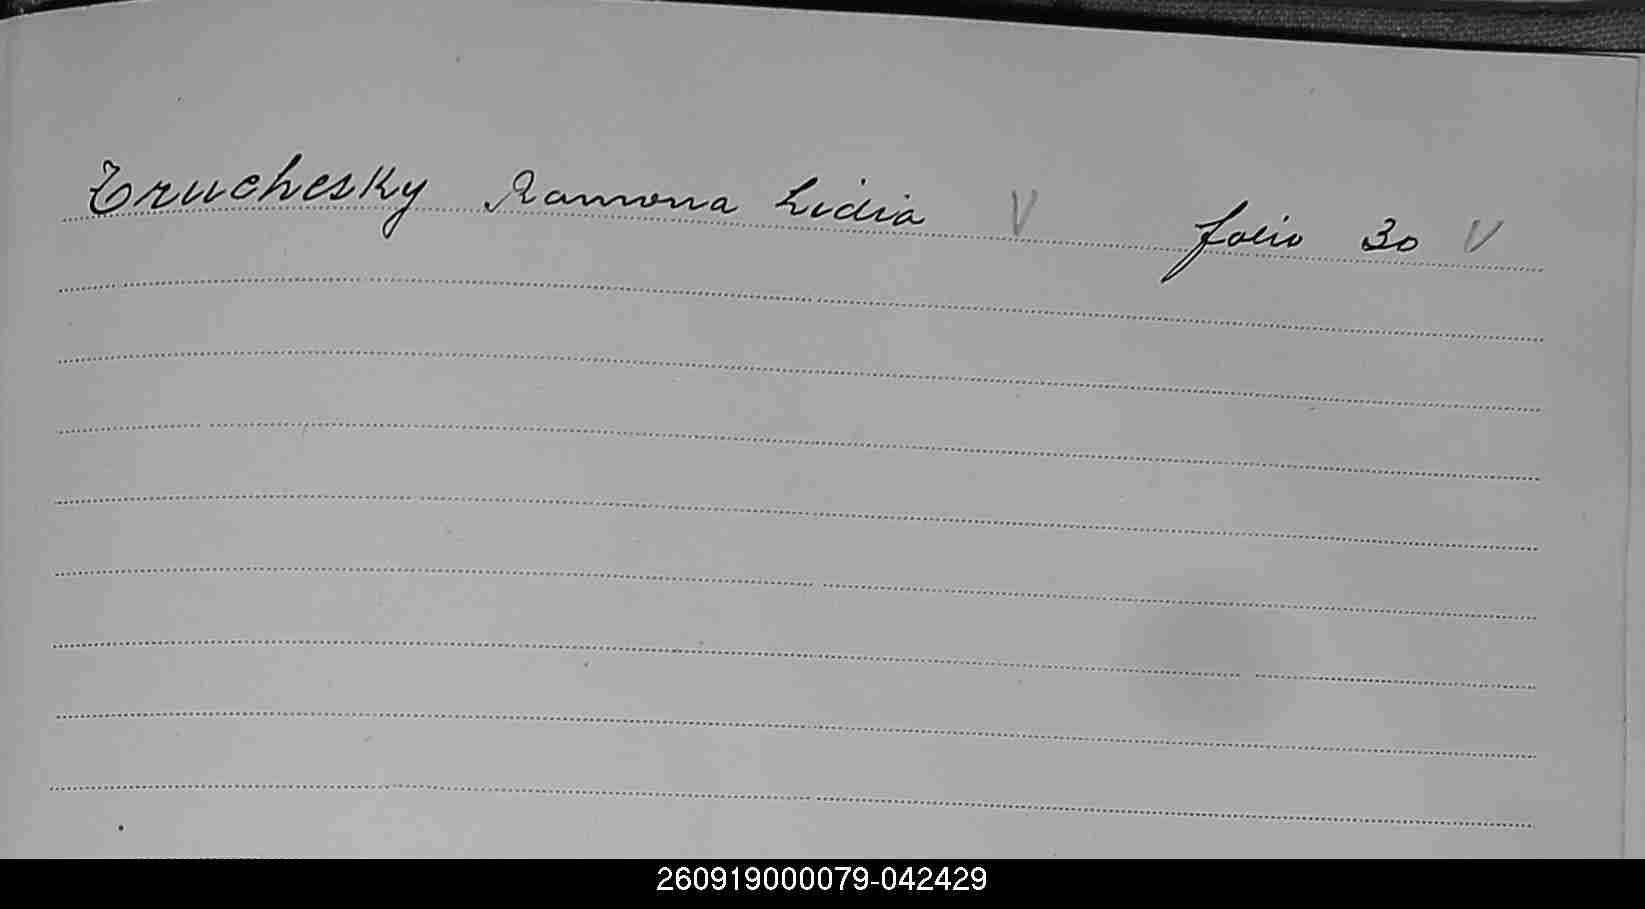 Truchesky Ramona Lidia V folio 30 V
260919000079-042429